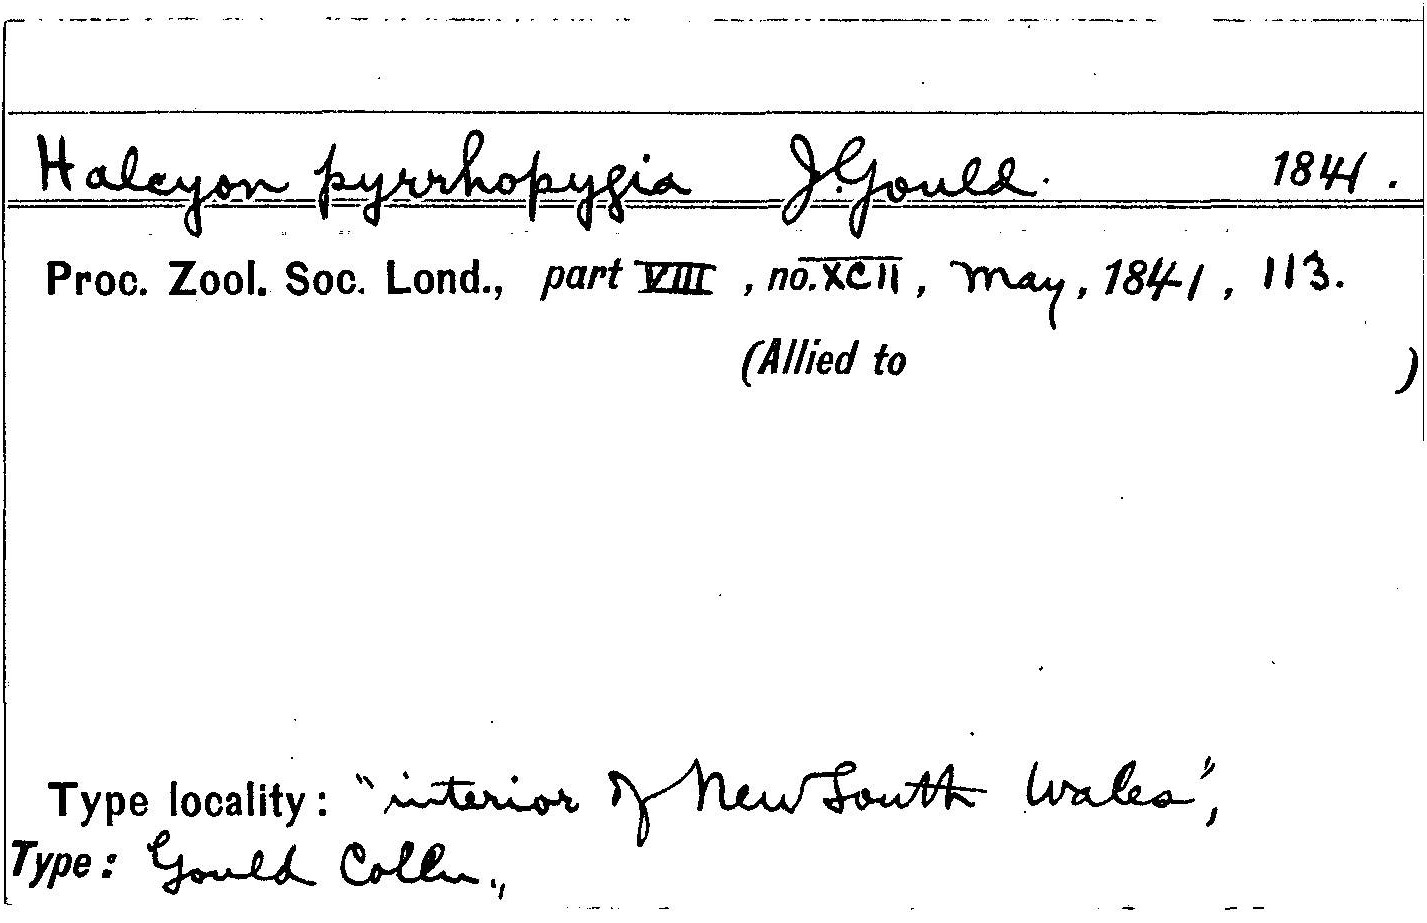 Halcyon pyrrhopygia J. Gould. 1841.
Proc. Zool. Soc. Lond., part VIII, no. XCII, May, 1841, 113.
(Allied to )
Type locality: "interior of New South Wales",
Type: Gould Colln.,